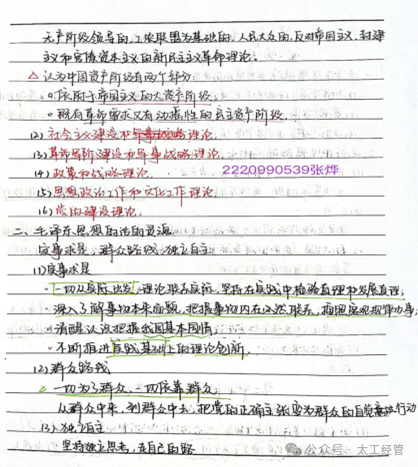 无产阶级领导的，工农联盟为基础的，人民大众的，反对帝国主义、封建
主义和官僚资本主义的新民主主义革命理论。
△认为中国资产阶级有两个部分：
。依附于帝国主义的大资产阶级；
。既有革命要求又有动摇性的民主资产阶级。
(2)社会主义建设和军事战略理论。
(3)革命军队建设和军事战略理论。
(4)政策和战略理论。
2220990539张烨
(5)思想政治工作和文化工作理论
(6)党的建设理论。
二、毛泽东思想的活的灵魂
实事求是，群众路线，独立自主
(1)实事求是
·一切从实际出发，理论联系实际，坚持在实践中检验真理和发展真理；
·深入了解事物本来面貌，把握事物内在必然联系，按照客观规律办事；
·清醒认识把握我国基本国情；
·不断推进实践基础上的理论创新。
(2)群众路线
△一切为了群众，一切依靠群众，
从群众中来，到群众中去，把党的正确主张变为群众的自觉行动
(3)独立自主
坚持独立思考，走自己的路
公众号·太工经管